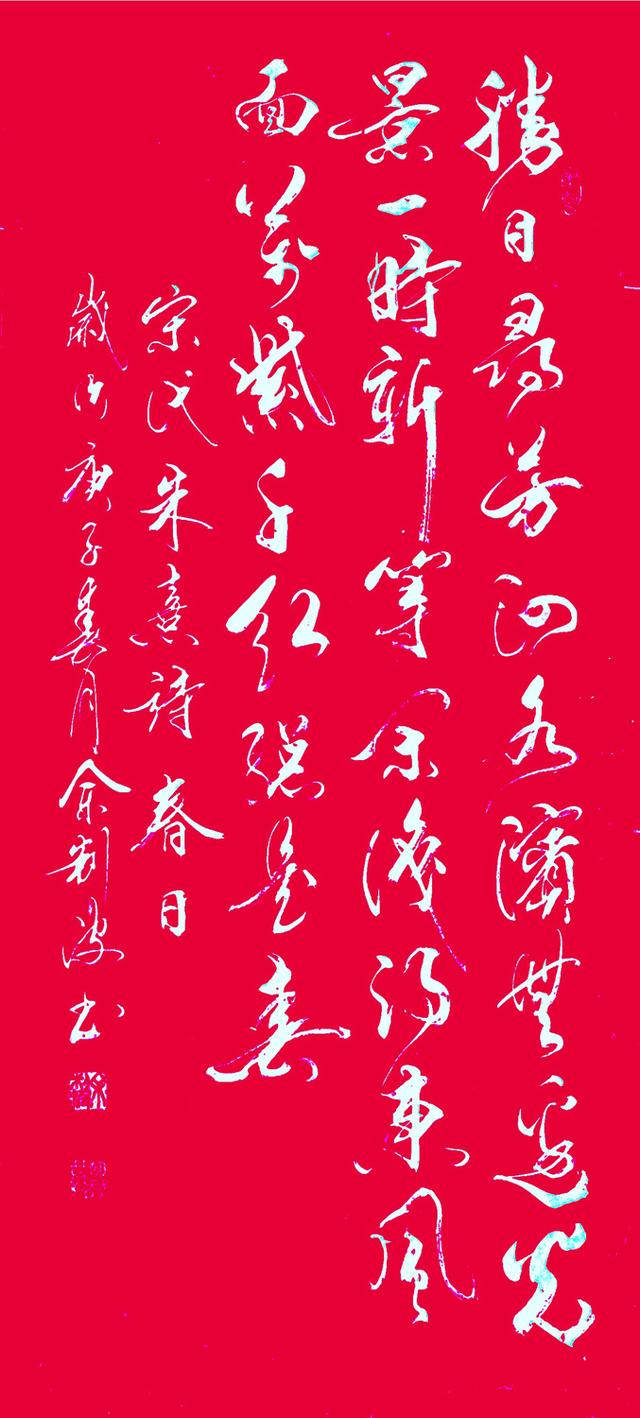 勝日尋芳泗水濱無邊光
景一時新等閒識得東風
面萬紫千紅總是春
宋代朱熹詩春日
歲次庚子春月余波書